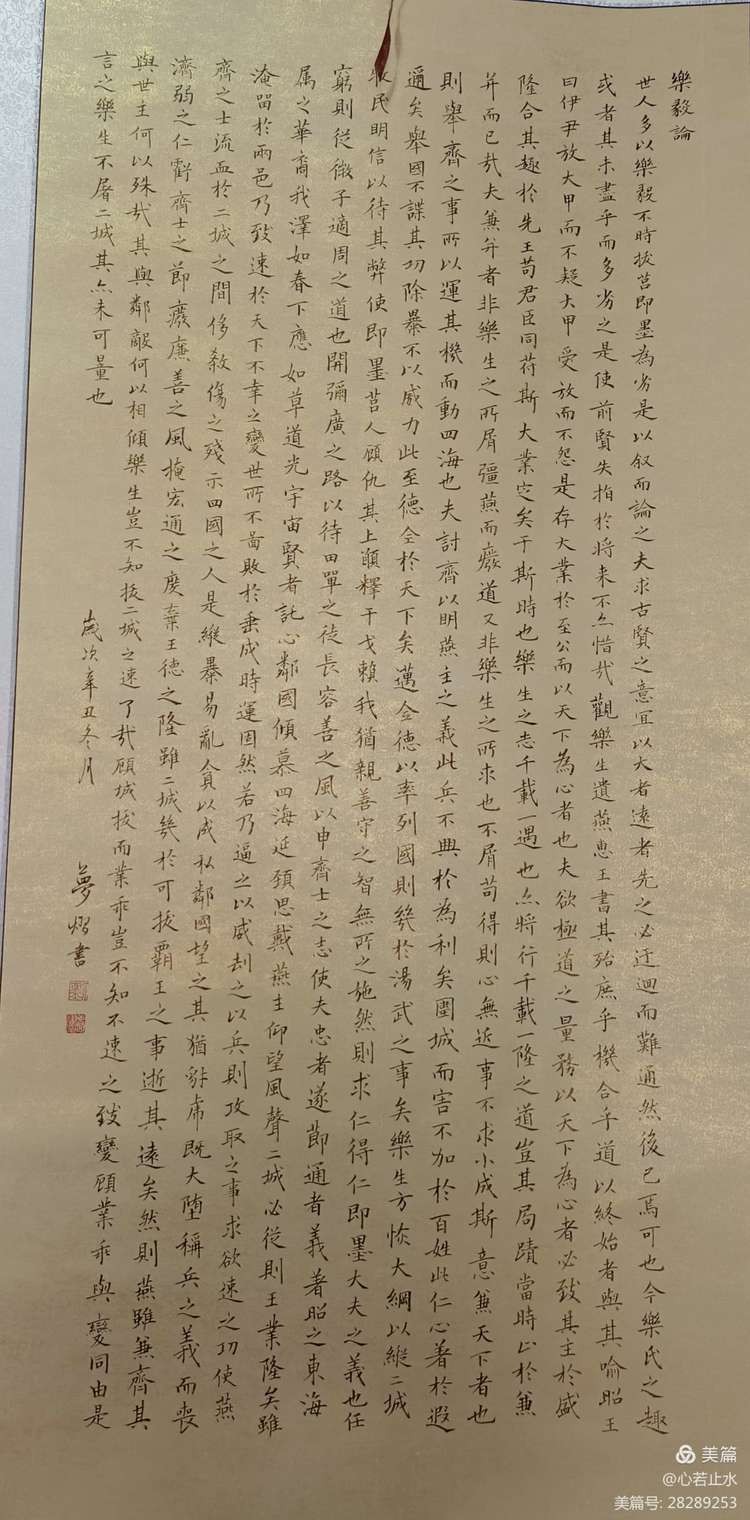 樂毅論
世人多以樂毅不時拔莒即墨為劣是以叙而論之夫求古賢之意宜以大者遠者先之必迂迴而難通然後已焉可也今樂氏之趣
或者其未盡乎而多劣之是使前賢失指於將来不亦惜哉觀樂生遺燕惠王書其殆庶乎機合乎道以終始者與其喻昭王
曰伊尹放大甲而不疑大甲受放而不怨是存大業於至公而以天下為心者也夫欲極道之量務以天下為心者必致其主於盛
隆合其趣於先王苟君臣同苻斯大業定矣于斯時也樂生之志千載一遇也亦將行千載一隆之道豈其局蹟當時止於兼
并而已哉夫兼并者非樂生之所屑彊燕而廢道又非樂生之所求也不屑苟得則心無近事不求小成斯意兼天下者也
則舉齊之事所以運其機而動四海也夫討齊以明燕主之義此兵不興於為利矣圍城而害不加於百姓此仁心著於遐
邇矣舉國不謀其功除暴不以威力此至德全於天下矣邁全德以率列國則幾於湯武之事矣樂生方恢大綱以縱二城
收民明信以待其弊使即墨莒人顧仇其上願釋干戈賴我猶親善守之智無所之施然則求仁得仁即墨大夫之義也任
窮則從微子適周之道也開彌廣之路以待田單之徒長容善之風以申齊士之志使夫忠者遂節通者義著昭之東海
属之華裔我澤如春下應如草道光宇宙賢者託心鄰國傾慕四海延頸思戴燕主仰望風聲二城必從則王業隆矣雖
淹留於兩邑乃致速於天下不幸之變世所不啚敗於垂成時運固然若乃逼之以威劫之以兵則攻取之事求欲速之功使燕
齊之士流血於二城之間侈殺傷之殘示四國之人是縱暴易亂貪以成私鄰國望之其猶豺虎既大堕稱兵之義而喪
濟弱之仁虧齊士之節廢廉善之風掩宏通之度棄王德之隆雖二城幾於可拔霸王之事逝其遠矣然則燕雖兼齊其
與世主何以殊哉其與鄰敵何以相傾樂生豈不知拔二城之速了哉顧城拔而業乖豈不知不速之致變顧業乖與變同由是
言之樂生不屠二城其亦未可量也
歲次辛丑冬月
夢熠書
美篇
@心若止水
美篇号: 28289253